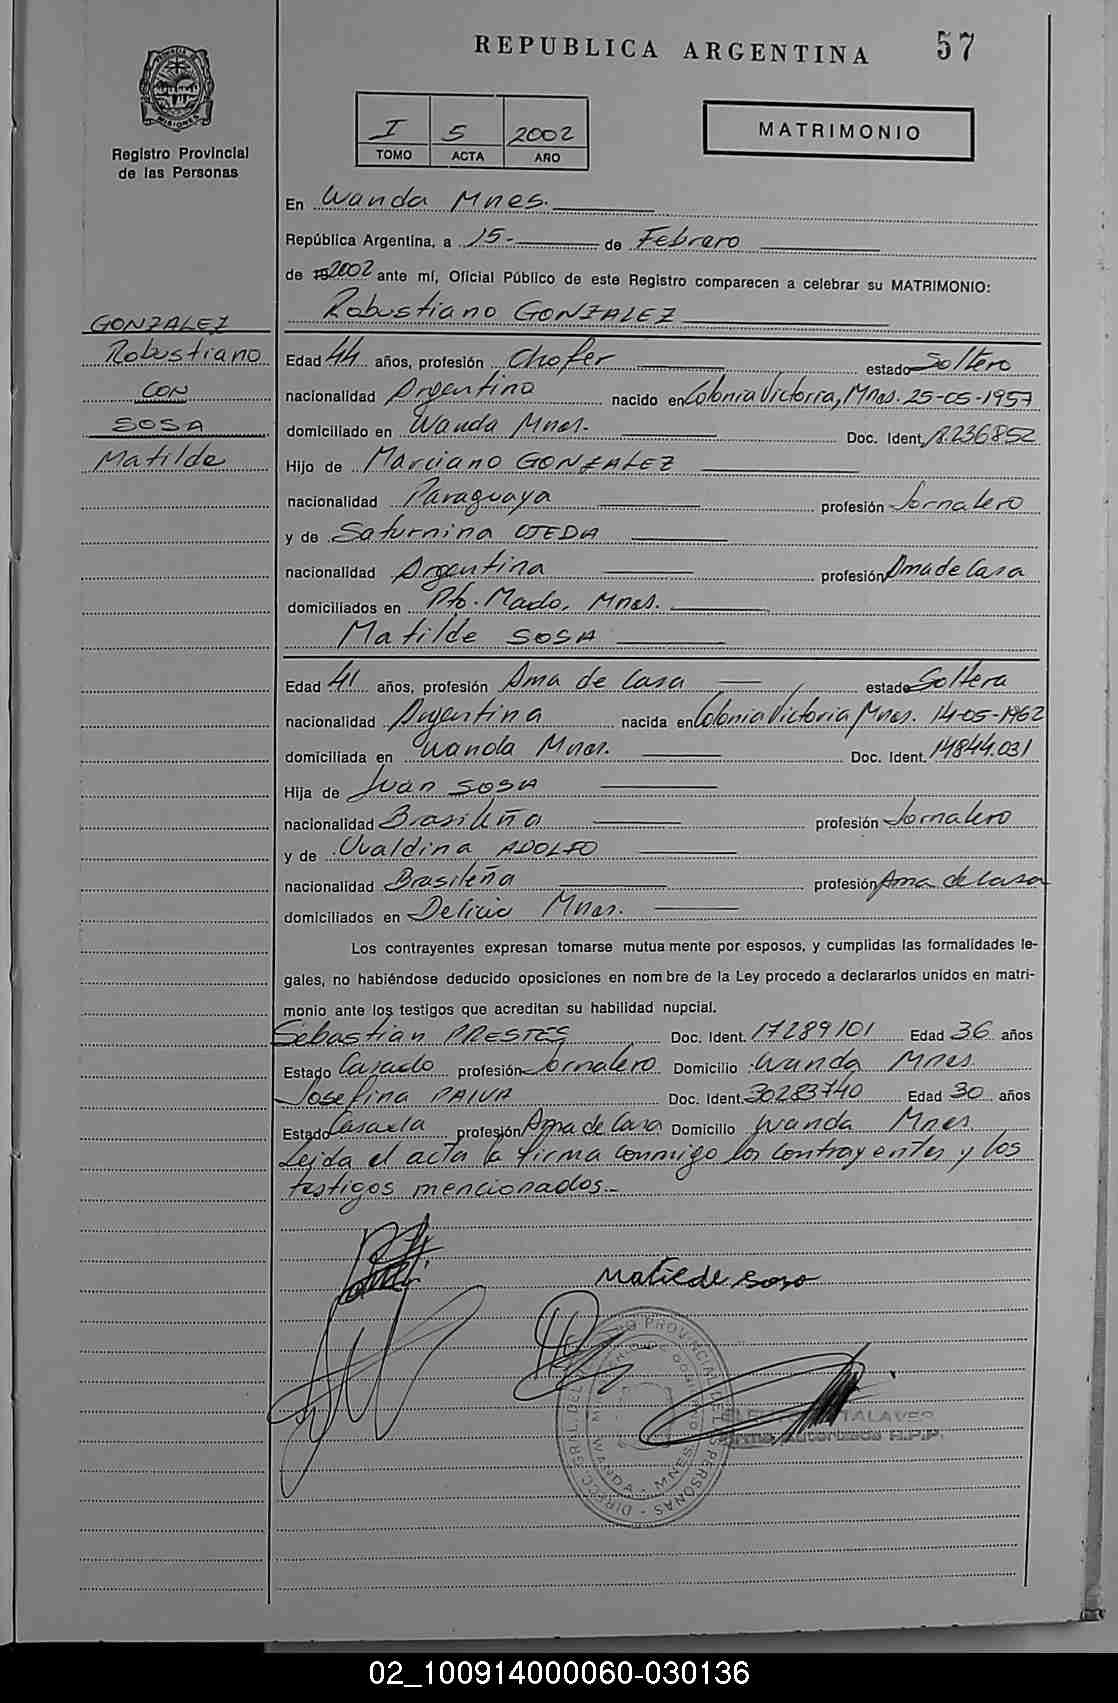 REPUBLICA ARGENTINA 57
Registro Provincial
de las Personas
I 5 2002
TOMO ACTA AÑO
MATRIMONIO
GONZALEZ
Robustiano
CON
SOSA
Matilde
En Wanda Mnes.
República Argentina, a 15- de Febrero
de 2002 ante mí, Oficial Público de este Registro comparecen a celebrar su MATRIMONIO:
Robustiano GONZALEZ
Edad 44 años, profesión Chofer estado Soltero
nacionalidad Argentino nacido en Colonia Victoria, Mnes. 25-05-1957
domiciliado en Wanda Mnes. Doc. Ident.
Hijo de Marciano GONZALEZ
nacionalidad Paraguaya profesión Jornalero
y de Saturnina OJEDA
nacionalidad Argentina profesión Ama de Casa
domiciliados en Pto. Mado, Mnes.
Matilde SOSA
Edad 41 años, profesión Ama de Casa estado Soltera
nacionalidad Argentina nacida en Colonia Victoria Mnes. 14-05-1962
domiciliada en Wanda Mnes. Doc. Ident. 14844.031
Hija de Juan SOSA
nacionalidad Brasileña profesión Jornalero
y de Uvaldina ADOLFO
nacionalidad Brasileña profesión Ama de Casa
domiciliados en Delicia Mnes.
Los contrayentes expresan tomarse mutua mente por esposos, y cumplidas las formalidades le-
gales, no habiéndose deducido oposiciones en nom bre de la Ley procedo a declararlos unidos en matri-
monio ante los testigos que acreditan su habilidad nupcial.
Sebastian PRESTES Doc. Ident. 17289101 Edad 36 años
Estado Casado profesión Jornalero Domicilio Wanda Mnes.
Josefina PAIVA Doc. Ident. 30283740 Edad 30 años
Estado Casada profesión Ama de Casa Domicilio Wanda Mnes
Leida el acta la firma conmigo los contrayentes y los
testigos mencionados.-
Matilde Sosa
WANDA - MNES
02_100914000060-030136